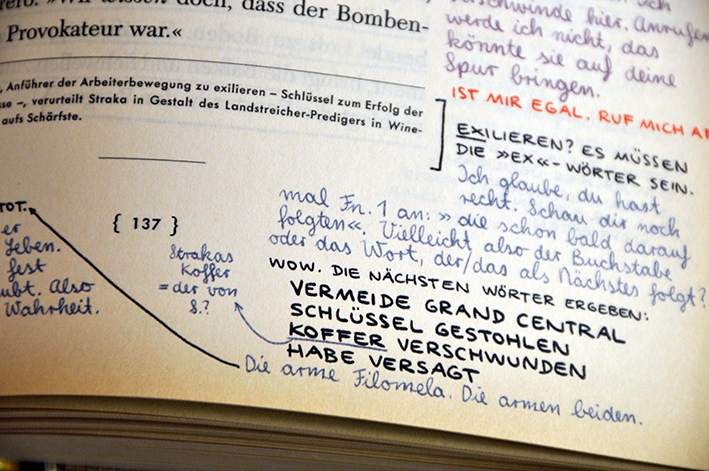 rero. »Wir wissen doch, dass der Bomben-
Provokateur war.«
, Anführer der Arbeiterbewegung zu exilieren – Schlüssel zum Erfolg der
sse –, verurteilt Straka in Gestalt des Landstreicher-Predigers in Wine-
aufs Schärfste.
ich
verschwinde hier. Anrufen
werde ich nicht, das
könnte sie auf deine
Spur bringen.
IST MIR EGAL. RUF MICH AN
EXILIEREN? ES MÜSSEN
DIE »EX«-WÖRTER SEIN.
Ich glaube, du hast
recht. Schau dir noch
mal Fn. 1 an: » die schon bald darauf
folgten«. Vielleicht also der Buchstabe
oder das Wort, der/das als Nächstes folgt?
WOW. DIE NÄCHSTEN WÖRTER ERGEBEN:
VERMEIDE GRAND CENTRAL
SCHLÜSSEL GESTOHLEN
KOFFER VERSCHWUNDEN
HABE VERSAGT
Die arme Filomela. Die armen beiden.
{ 137 }
Strakas
Koffer
= der von
S.?
TOT.
er
Leben.
fest
ubt. Also
Wahrheit.